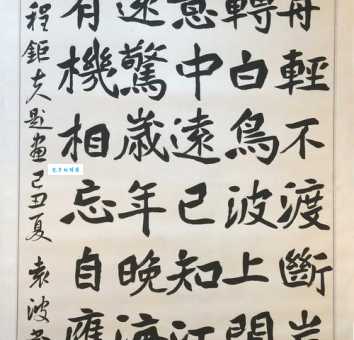 舟輕不渡斷岸
轉白鳥波上閒
意中遠已知江
驚歲年晚海
有機相忘自應
程鉅夫題畫己丑夏 袁波書